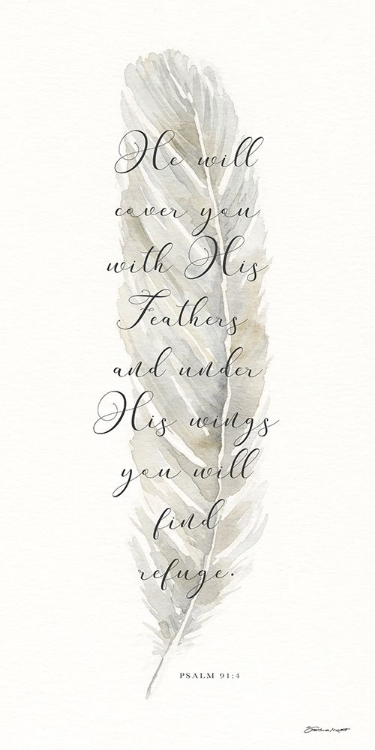 He will
cover you
with His
Feathers
and under
His wings
you will
find
refuge.
PSALM 91:4